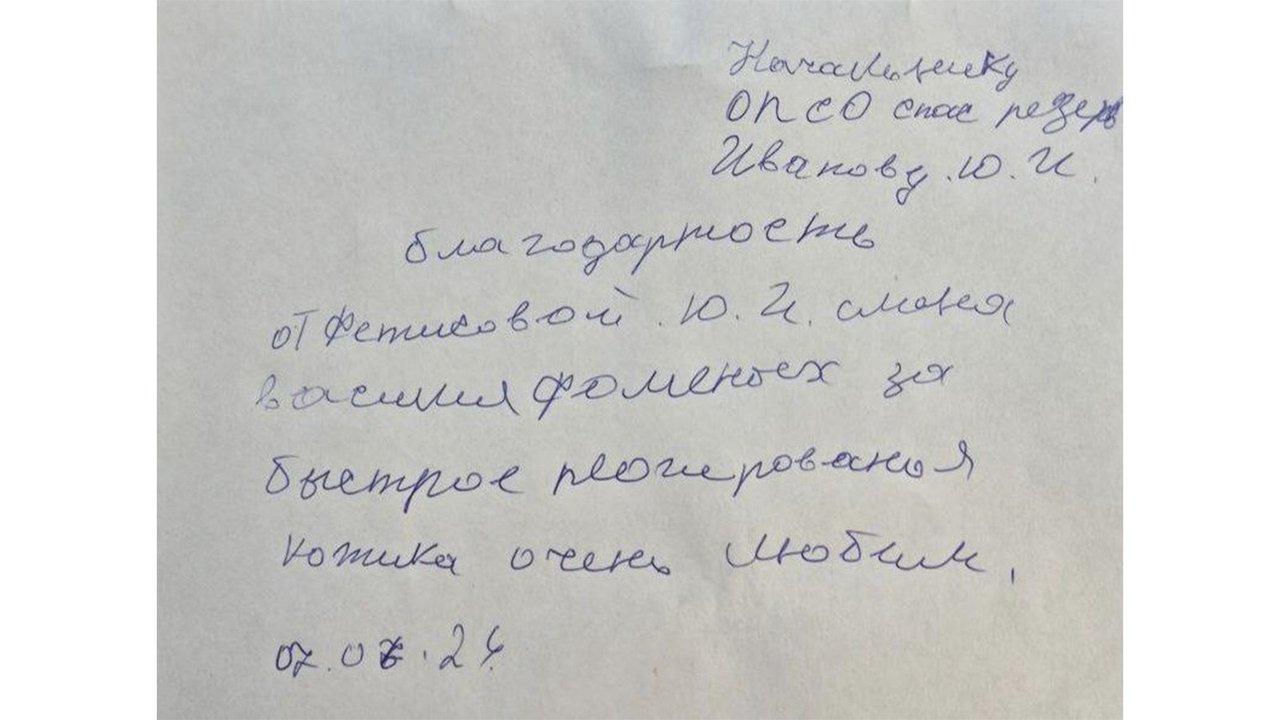 Начальнику
ОПСО спас резерв
Иванову.Ю.И.
благодарность
от Фетисовой.Ю.И. смена
василия Фоменых за
быстрое реогирования
котика очень любим.
07.07.24.